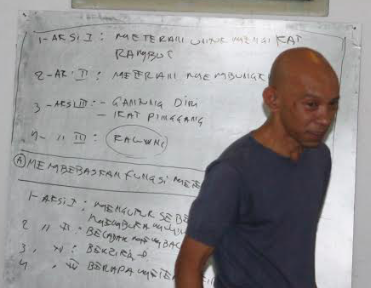 1-AKSI I: METERAN UNTUK MENGIKAT
RAMBUT
2-AK· II: METERAN MEMBUNGK
3-AKSI III:- GANTUNG DIRI
- IKAT PINGGANG
4- " IV:
A MEMBEBASKAN FUNGSI METE
1-AKSI I: MENGUKUR SEBE
2 " II: BELAJAR MEMBAC
3, " :
4 " : BERAPA METE